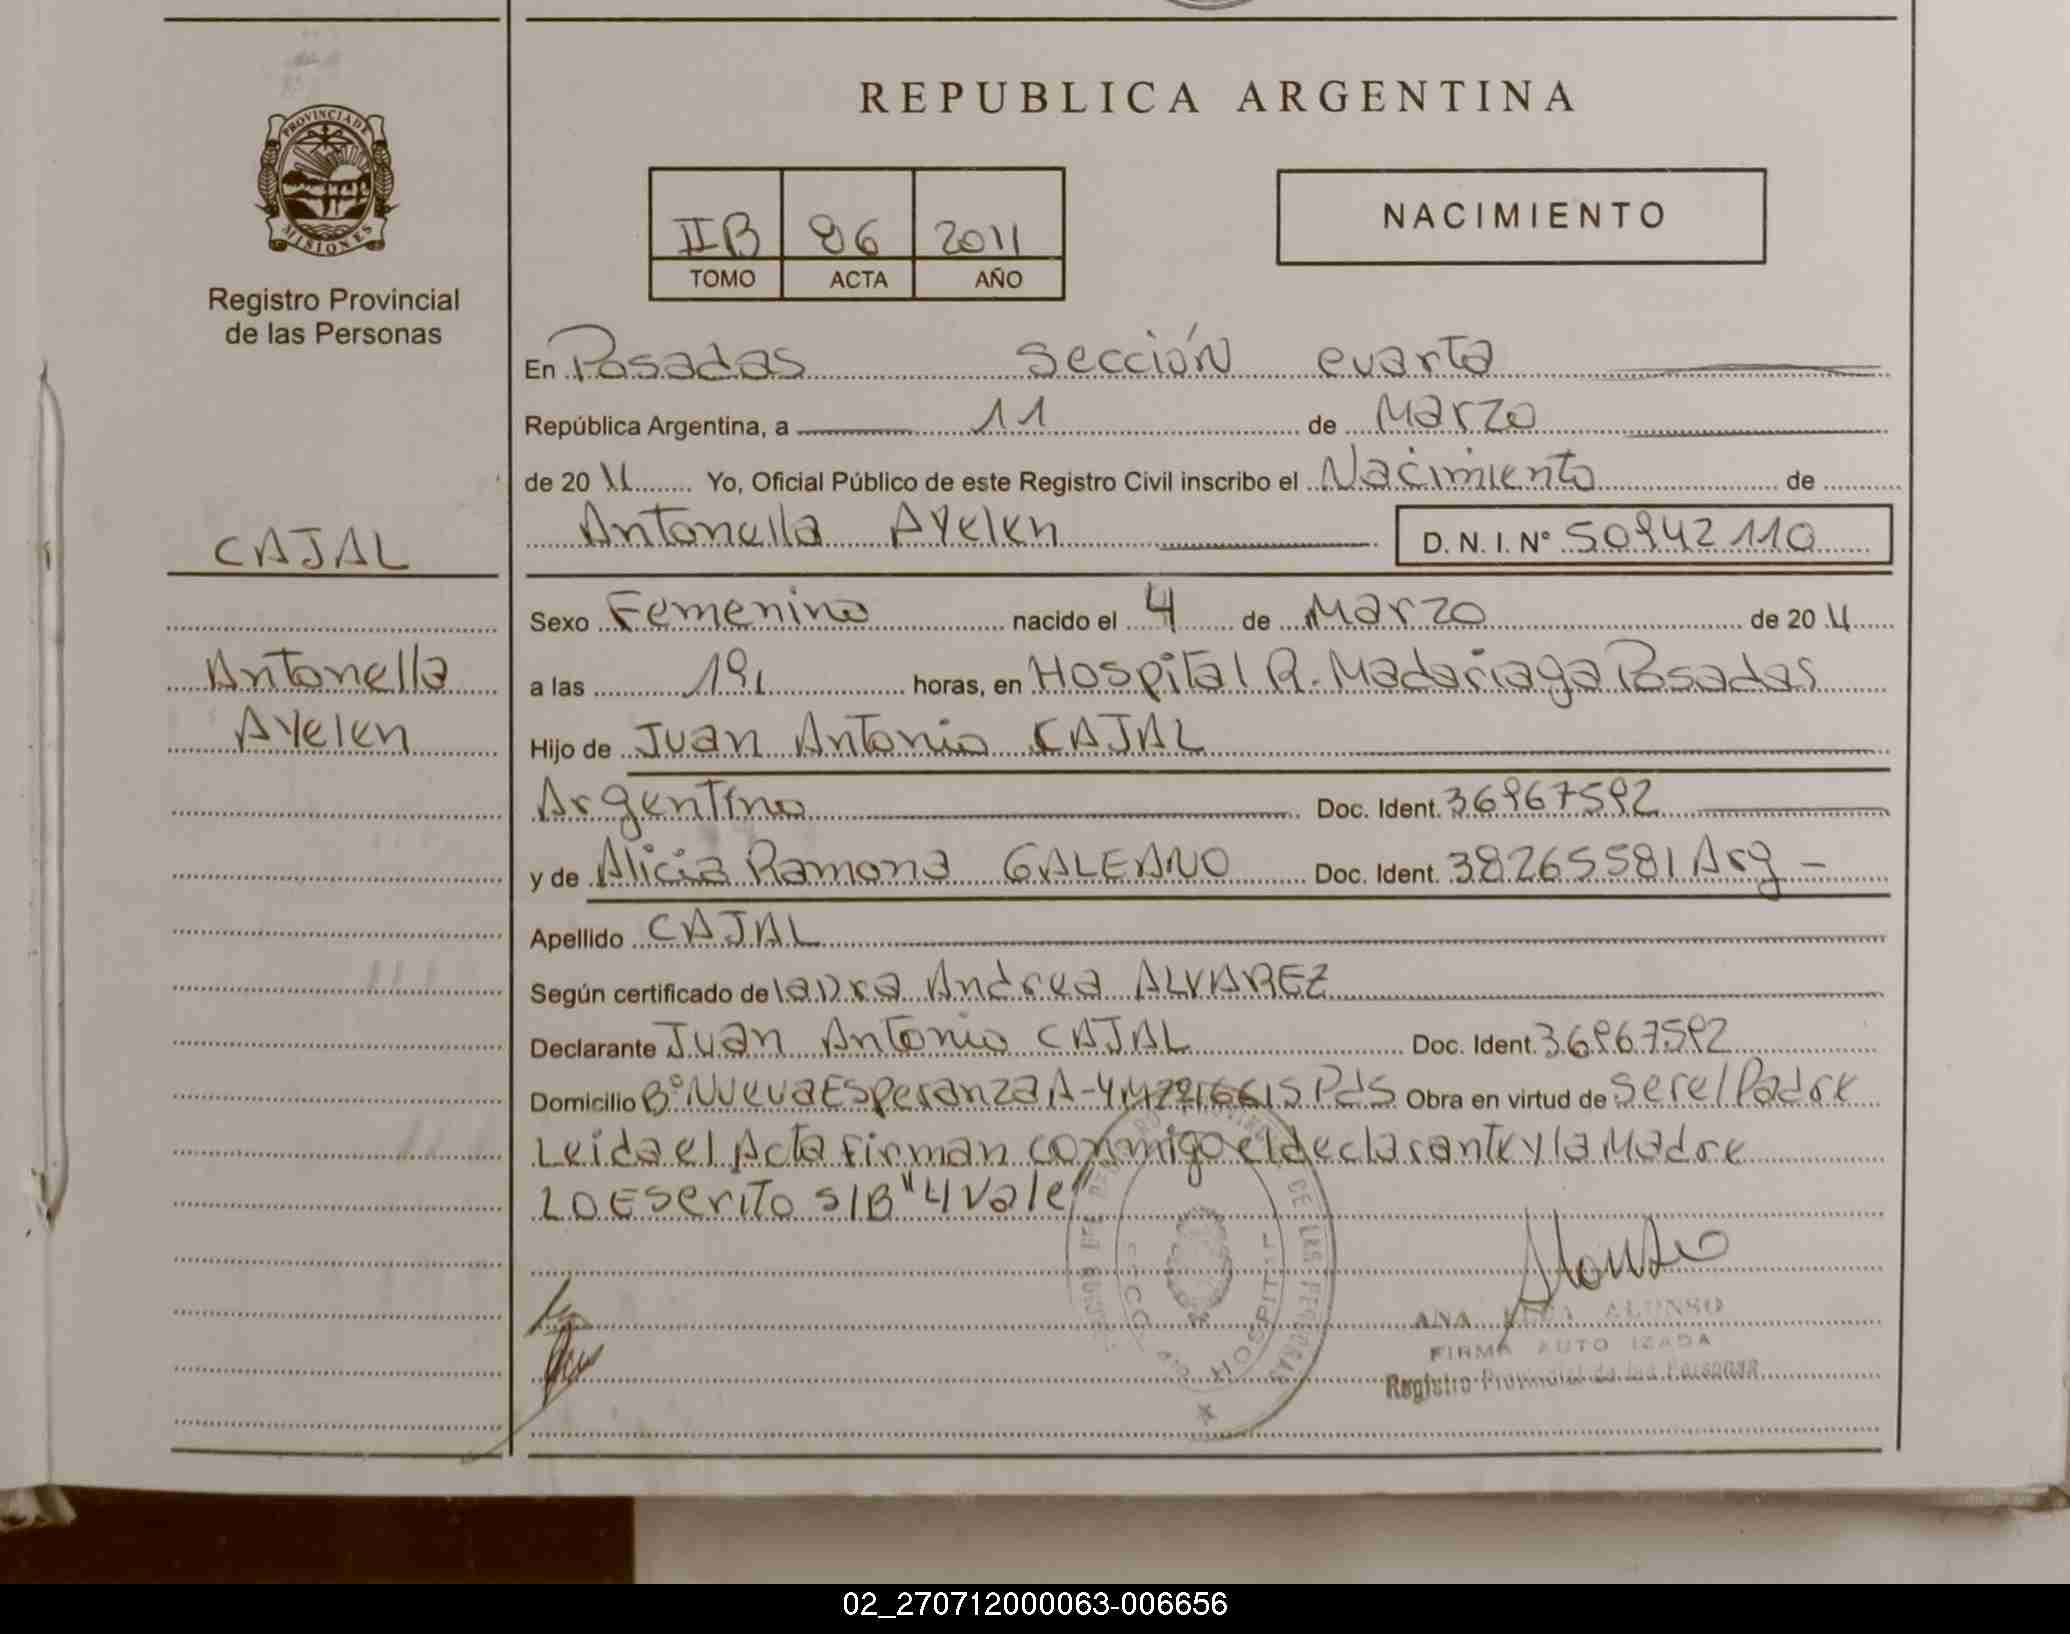 REPUBLICA ARGENTINA
PROVINCIA DE MISIONES
Registro Provincial
de las Personas
NACIMIENTO
IIB 86 2011
TOMO ACTA AÑO
En Posadas Sección cuarta
República Argentina, a 11 de Marzo
de 20 11 Yo, Oficial Público de este Registro Civil inscribo el Nacimiento de
Antonella Ayelen D. N. I. Nº 50942110
CAJAL
Antonella
Ayelen
Sexo Femenino nacido el 4 de Marzo de 20 11
a las 19, horas, en Hospital R. Madariaga Posadas
Hijo de Juan Antonio CAJAL
Argentino Doc. Ident. 36967592
y de Alicia Ramona GALEANO Doc. Ident. 38265581 Arg -
Apellido CAJAL
Según certificado de laura Andrea ALVAREZ
Declarante Juan Antonio CAJAL Doc. Ident. 36967592
Domicilio Bº Nueva Esperanza A-4 Pds Obra en virtud de ser el Padre
Leida el Acta firman conmigo el declarante y la Madre
LO Escrito S/B "4 Vale"
DE LAS PERSONAS
HOSPITAL
ANA ALONSO
FIRMA AUTO IZADA
Registro Provincial de las Personas
02_270712000063-006656